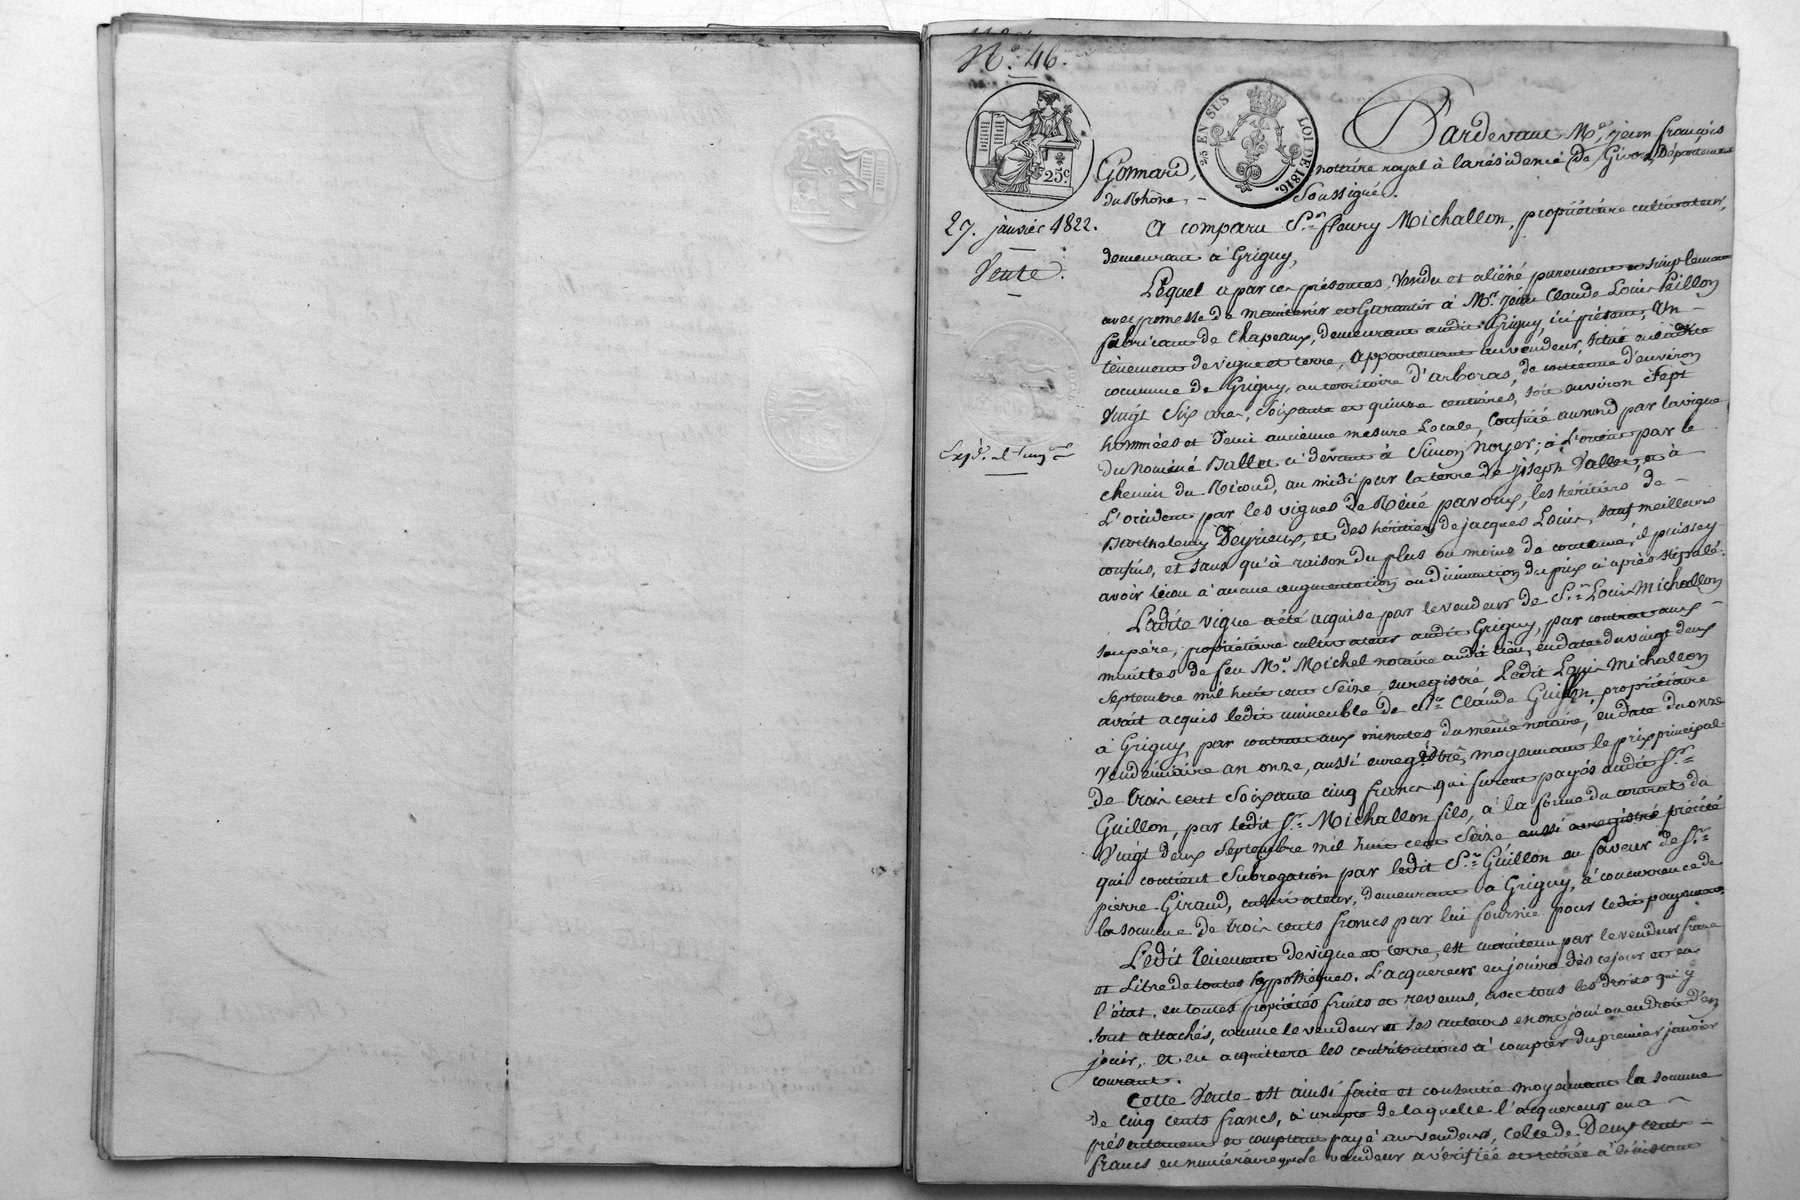 N.° 46.
25 EN SUS LOI DE 1816.
25c.
Pardevant Me. jean françois
Gonnard, notaire royal à la résidence de Givors, Département
du Rhône, - Soussigné.
27. janvier 1822.
Vente.
A comparu S.r fleury Michallon, propriétaire cultivateur,
demeurant à Grigny,
Lequel a par ces présentes, Vendu et aliéné purement et simplement
avec promesse de maintenir et Garantir à Mr. jean Claude Louis Paillon
fabricant de Chapeaux, demeurant audit Grigny, ici présent, Un -
tènement de vigne et terre, appartenant au vendeur, situé en ladite
commune de Grigny, au territoire d'arboras, de contenue d'environ
Vingt Six ares, Soixante et quinze centiares, soit environ Sept
hommées et demi ancienne mesure Locale, Confiné au nord par la vigne
du nommé Ballet ci devant à Simon Noyer; à L'orient par le
chemin du Recoud, au midi par la terre de joseph Vallet, et à
L'occident par les vignes de Réné pavoux, les héritiers de -
Barthelemy Deyrieux, et des héritiers de jacques Louis, sauf meilleurs
confins, et sans qu'à raison du plus ou moins de contenue, il puisse y
avoir lieu à aucune augmentation ou diminution du prix ci après stipulé.
Expé. et
Ladite vigne a été acquise par le vendeur de S.r Louis Michallon
son père, propriétaire cultivateur audit Grigny, par contrat aux -
minutes de feu Me. Michel notaire audit lieu, en date du vingt deux
Septembre mil huit cent Seize, enregistré. Ledit Louis Michallon
avait acquis ledit immeuble de Sr. Claude Guillon, propriétaire
à Grigny, par contrat aux minutes du même notaire, en date du onze
vendémiaire an onze, aussi enregistré, moyennant le prix principal
de trois cent Soixante cinq francs qui furent payés audit Sr.
Guillon, par ledit Sr. Michallon fils, à la forme du contrat du
Vingt deux Septembre mil huit cent Seize aussi enregistré précité
qui contient Subrogation par ledit S.r Guillon en faveur de Sr.
pierre Giraud, cultivateur, demeurant à Grigny, à concurrence de
la somme de trois cents francs par lui fournie pour ledit payement.
Ledit tènement de vigne et terre, est maintenu par le vendeur franc
et Libre de toutes hyppothèques. L'acquereur en jouira dès ce jour et en
l'état, en toutes propriétés fruits et revenus, avec tous les droits qui y
sont attachés, comme le vendeur et ses auteurs en ont joui ou eu droit d'en
jouir, et en acquittera les contributions à compter du premier janvier
courant.
Cette Vente est ainsi faite et consentie moyennant la somme
de cinq cents francs, à compte de laquelle l'acquereur en a -
présentement et comptant payé au vendeur, celle de Deux cents -
francs en numéraire que le vendeur a vérifiée et retirée à l'instant